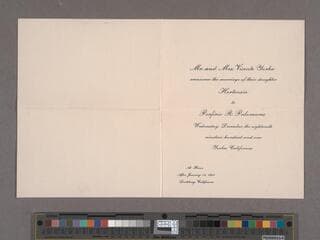 Mr. and Mrs. Vicente Yorba
announce the marriage of their daughter
Hortensia
to
Porfirio R. Palomares
Wednesday, December the eighteenth
nineteen hundred and one
Yorba California
At Home
After January 15, 1902
California